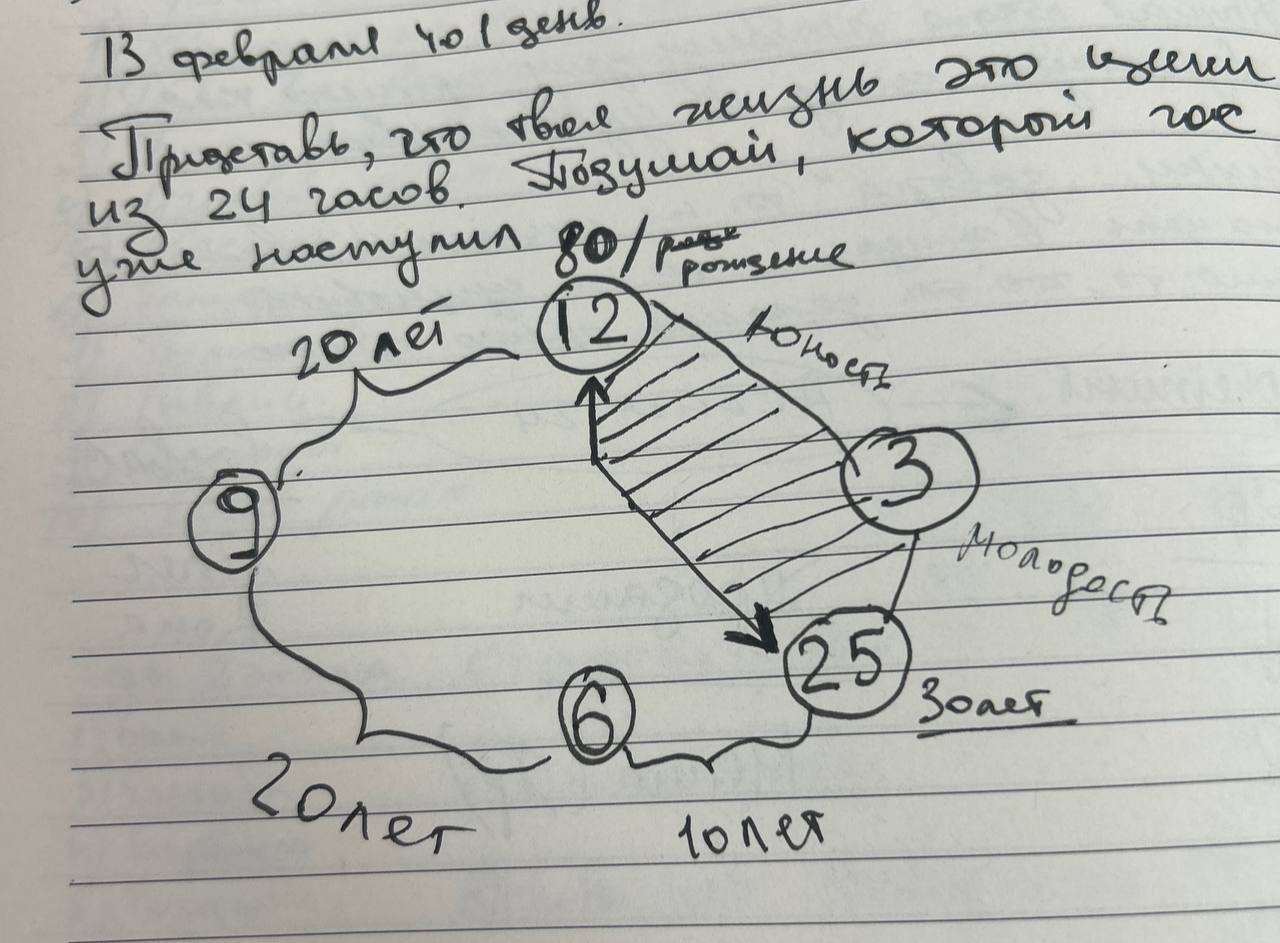 13 февраля 401 день.
Представь, что твоя жизнь это цикл
из 24 часов. Подумай, который час
уже наступил 80/
рождение
20 лет
12
Юность
3
9
Молодость
25
30 лет
6
20 лет
10 лет